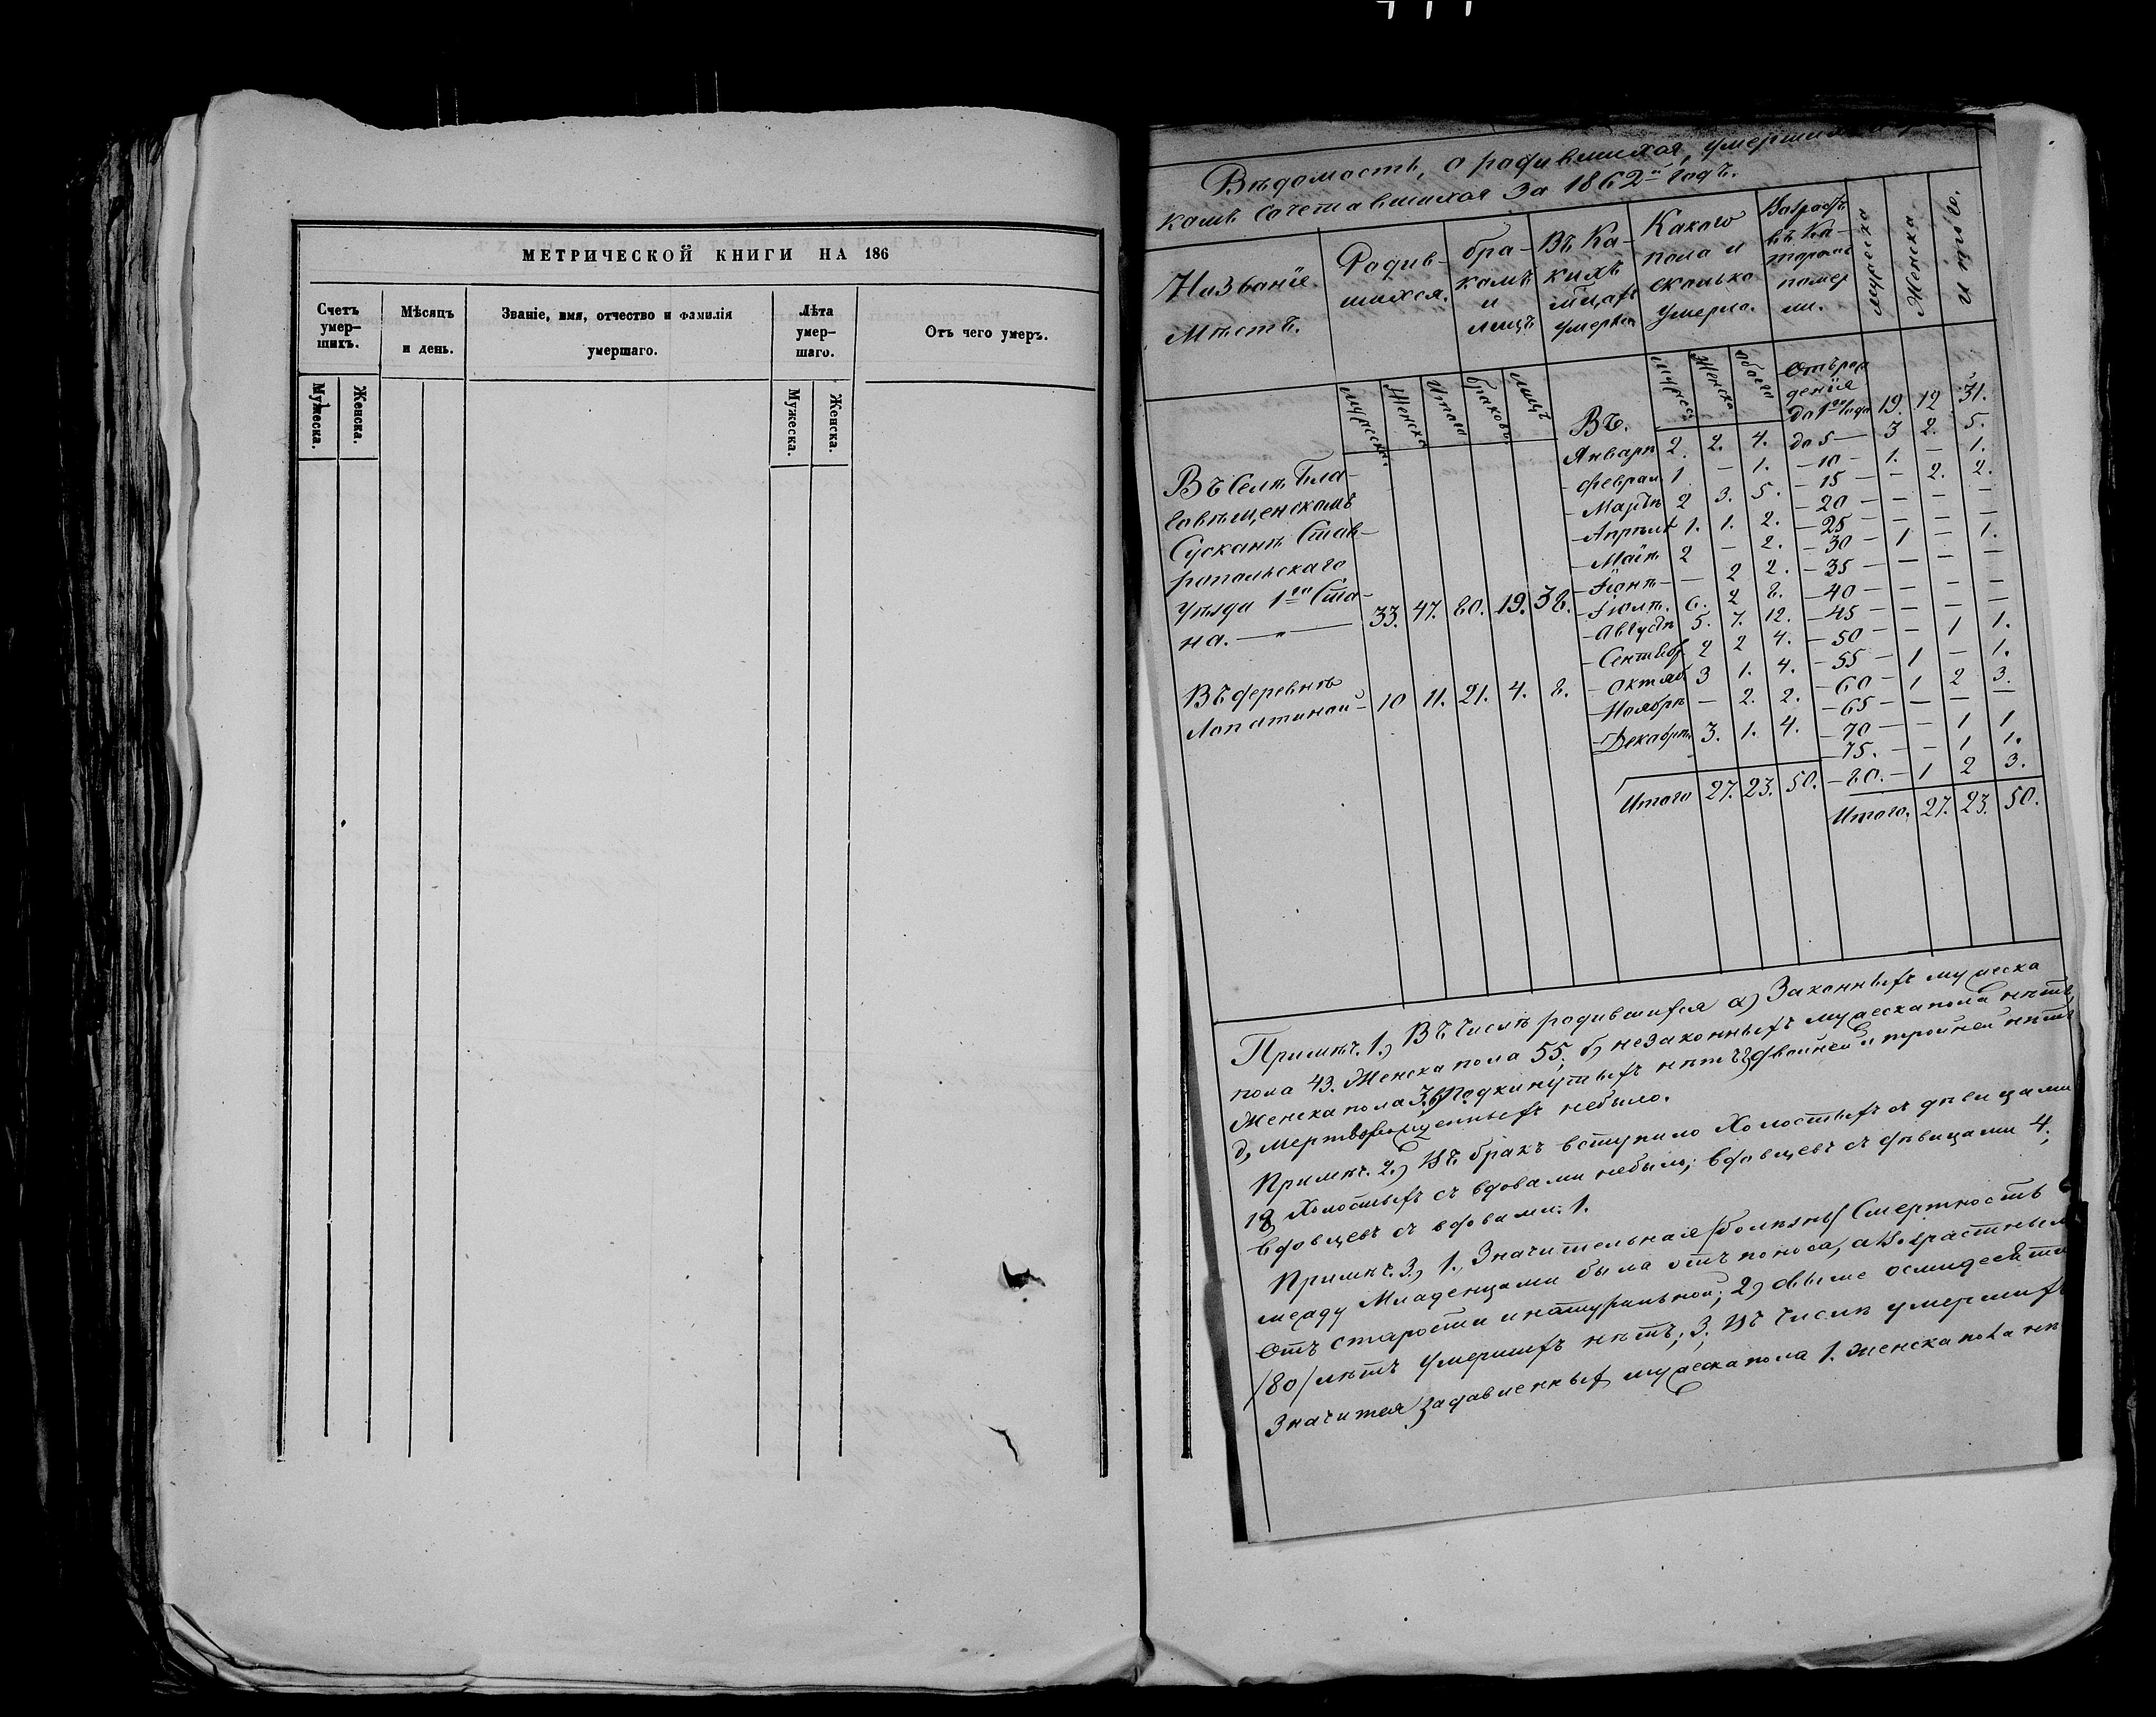 МЕТРИЧЕСКОЙ КНИГИ НА 186
Счетъ умер-щихъ.
Мѣсяцъ и день.
Званіе, имя, отчество и фамилія умершаго.
Лѣта умер-шаго.
Отъ чего умеръ.
Мужеска. Женска. Мужеска. Женска.
Вѣдомость, о родившихся, умершихъ
комъ сочетавшихся за 1862й годъ.
Названіе Мѣстъ.
Родив-шихся.
бра-комъ и лицъ
Въ Ка-кихъ мѣцахъ умерли
Какого пола и сколько умерло.
Возрастъ въ ко-торомъ помер ли.
мужеска
Женска.
Итого.
мужеска Женска Итого браковъ лицъ
Въ.
мужеска Женска обоего
Отърож денія до 1го года 19. 12 31.
Январѣ 2. 2. 4. до 5 — 3 2. 5.
Феврал. 1 — 1. — 10 — 1. — 1.
Мартѣ 2 3. 5. — 15 — — 2. 2.
— 20 — — — —
Апрѣлѣ 1. 1. 2. — 25 — — — —
Маіѣ 2 — 2. — 30 — 1 — 1.
Іюнѣ — 2 2. — 35 — — — —
Іюлѣ. 6. 2 8. — 40 — — — —
Августѣ 5. 7. 12. — 45 — — — —
Сентябр. 2 2 4. — 50 — — 1 1.
Октяб. 3 1. 4. — 55 — 1 — 1.
Ноябрѣ — 2. 2. — 60 — 1 2 3.
— 65 — — — —
Декабрѣ. 3. 1. 4. — 70 — — 1 1
75. — — 1 1.
— 80. — 1 2 3.
Итого 27. 23. 50.
Итого. 27. 23. 50.
Въ Селѣ Бла-
говѣщенскомъ
Сусканѣ Став-
ропольскаго
уѣзда 1го Ста-
на. — „ — 33. 47. 80. 19. 38.
Въ деревнѣ
Лопатиной — 10 11. 21. 4. 8.
Примѣч. 1.) Въ числѣ родившихся а) Законныхъ мужеска
пола 43. Женска пола 55; б) незаконныхъ мужеска пола нѣтъ,
Женска пола 3. в) Подкинутыхъ нѣтъ г) двойней и тройней нѣтъ
д) мертворожденныхъ небыло.
Примѣч. 2.) Въ бракъ вступило Холостыхъ съ дѣвицами
18, Холостыхъ съ вдовами небыло; вдовцевъ съ дѣвицами 4,
вдовцевъ съ вдовами: 1.
Примѣч. 3.) 1. Значительная /болѣзнь/ Смертность
между Младенцами была отъ поноса, а возрастным
отъ старости и натуральной; 2) Свыше осмидесяти
/80/ лѣтъ умершихъ нѣтъ; 3. Въ числѣ умершихъ
Значится задавленныхъ мужеска пола 1. женска пола нѣ